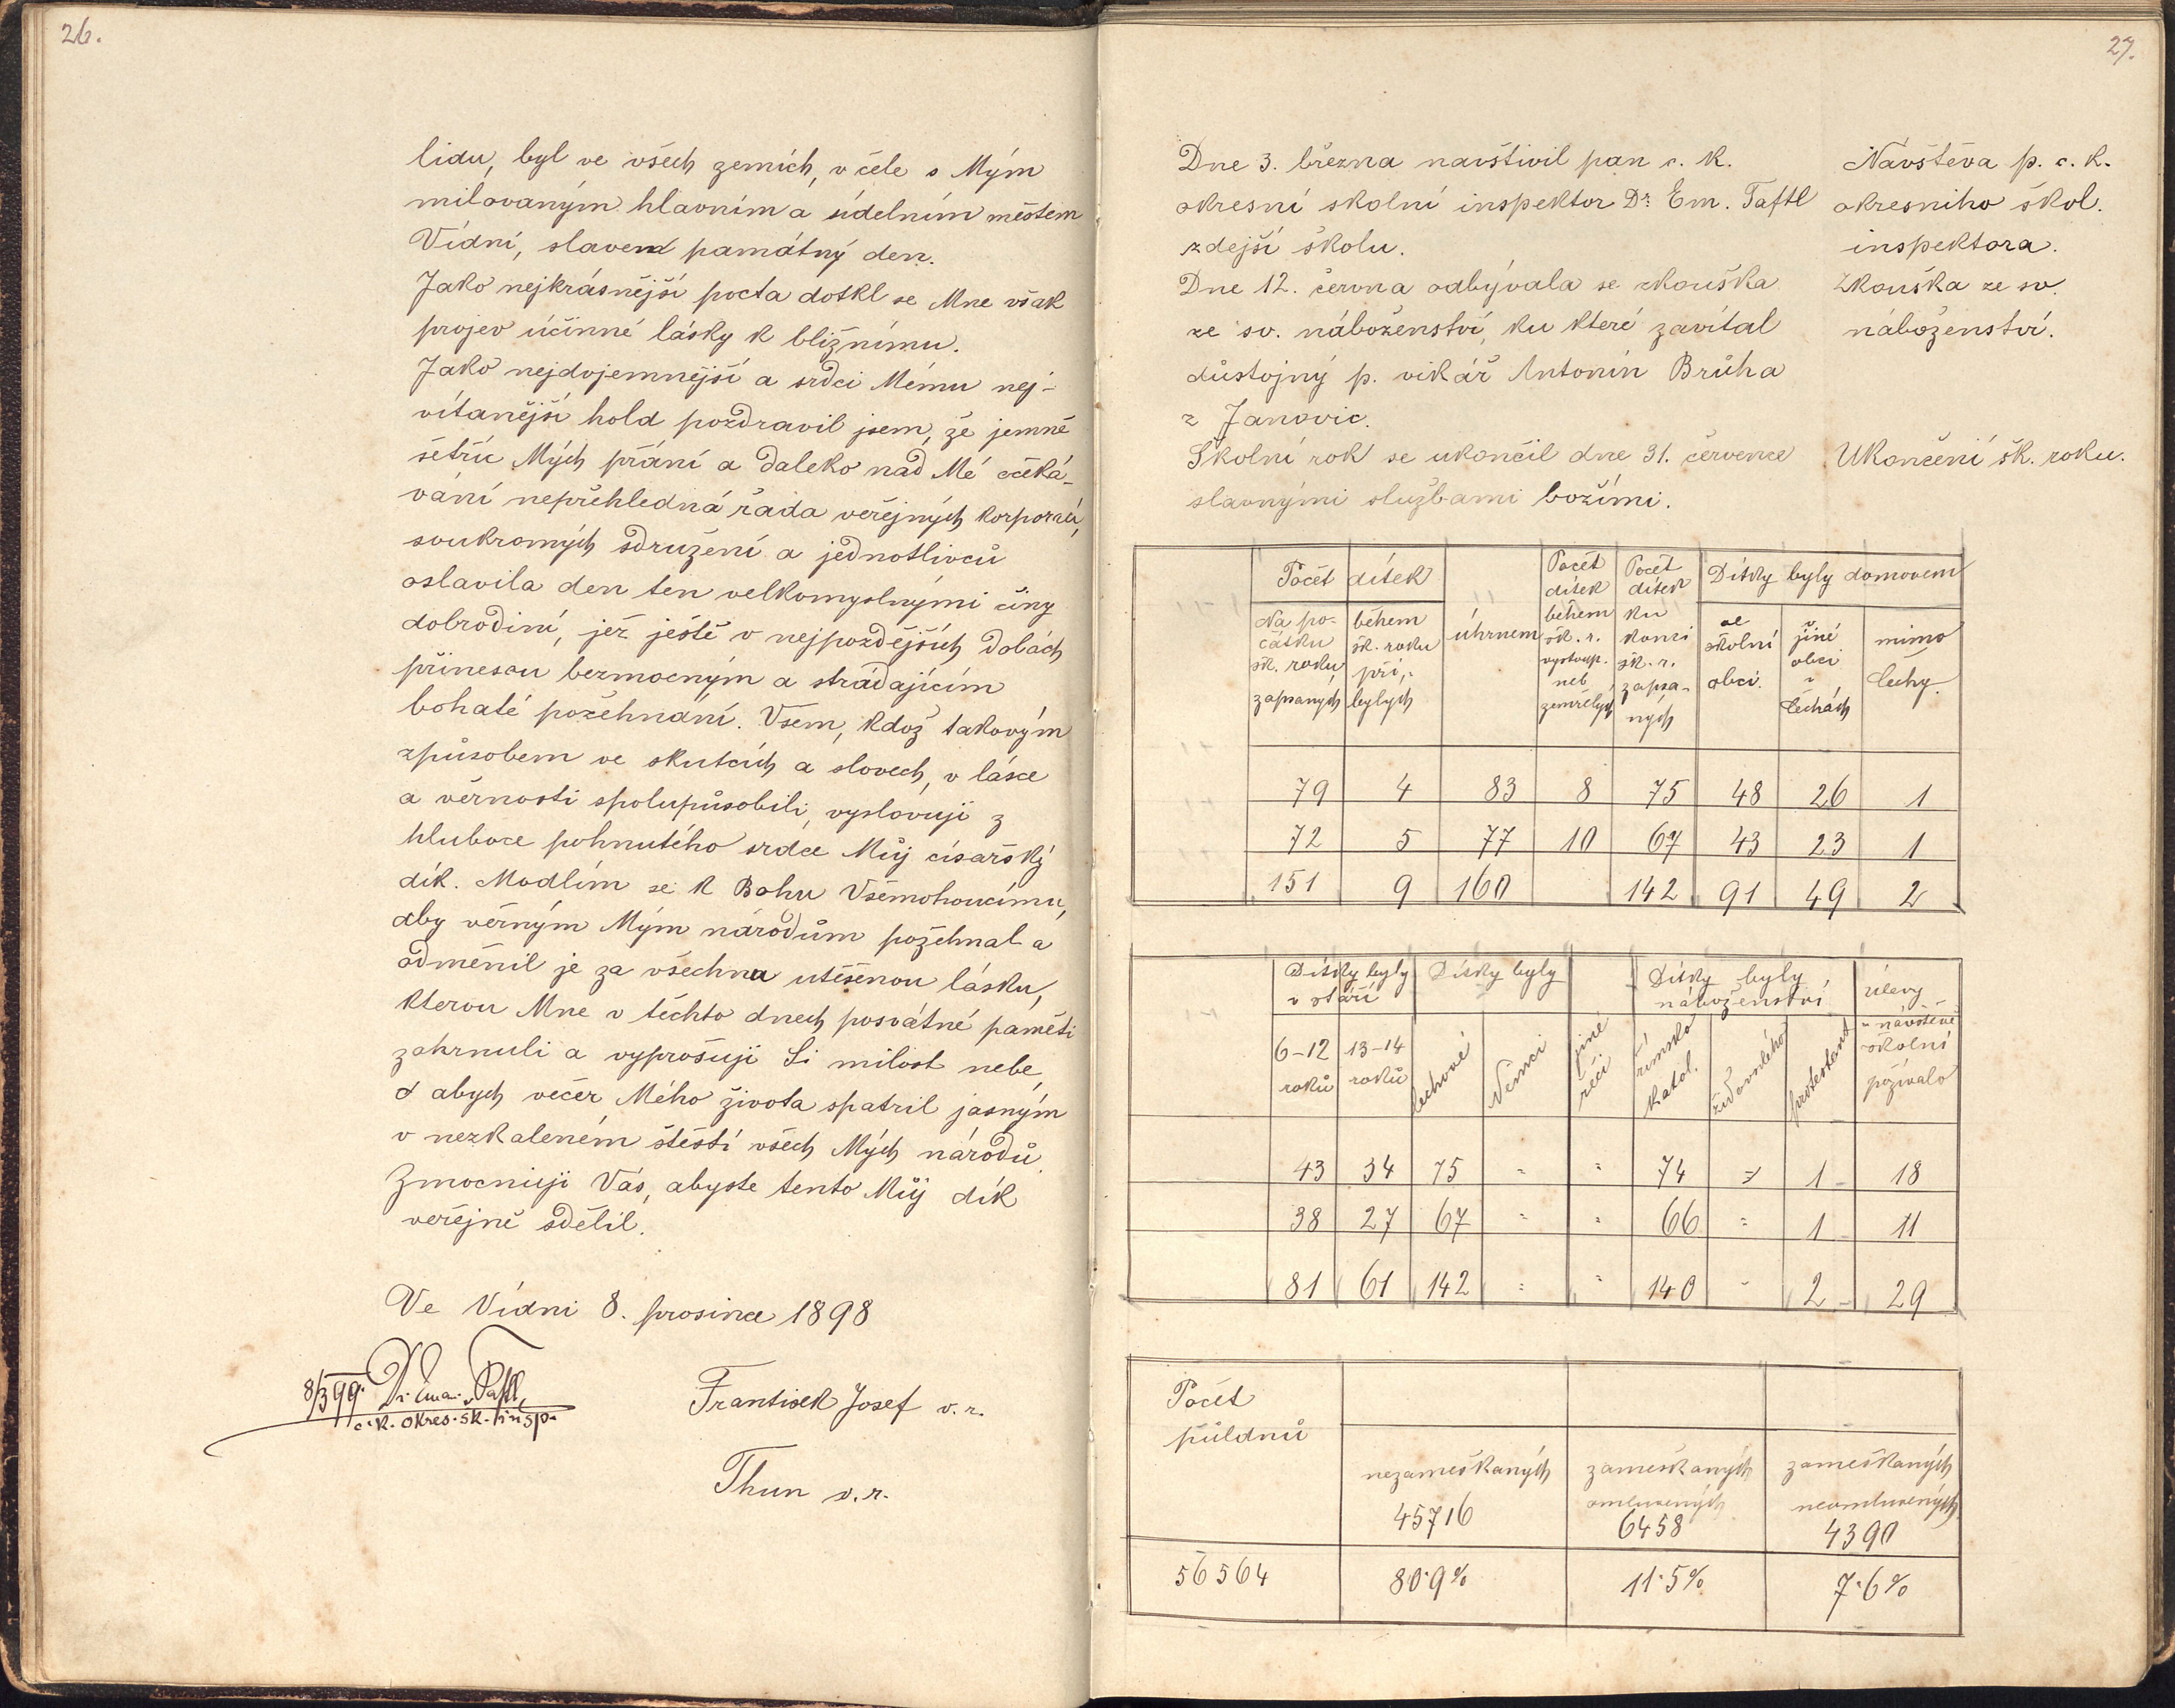 26.
lidu, byl ve všech zemích, v čele s Mým
milovaným hlavním a sídelním městem
Vídní, slaven památný den.
Jako nejkrásnější pocta dotkl se Mne však
projev účinné lásky k bližnímu.
Jako nejdojemnější a srdci Mému nej-
vítanější hold pozdravil jsem, že jemně
šetříc Mých přání a daleko nad Mé očeká-
vání nepřehledná řada veřejných korporací,
soukromých sdružení a jednotlivců
oslavila den ten velkomyslnými činy
dobrodiní, jež ještě v nejpozdějších dobách
přinesou bezmocným a strádajícím
bohaté požehnání. Všem, kdož takovým
způsobem ve skutcích a slovech, v lásce
a věrnosti spolupůsobili, vyslovuji z
hluboce pohnutého srdce Můj císařský
dík. Modlím se k Bohu Všemohoucímu,
aby věrným Mým národům požehnal a
odměnil je za všechnu utěšenou lásku,
kterou Mne v těchto dnech posvátné paměti
zahrnuli a vyprošuji Si milost nebe,
abych večer Mého života spatřil jasným
v nezkaleném štěstí všech Mých národů.
Zmocňuji Vás, abyste tento Můj dík
veřejně sdělil.
Ve Vídni 8. prosince 1898
8/3 99. Dr. Eman. Taftl
c. k. okres. šk. insp.
František Josef v. r.
Thun v. r.
27.
Dne 3. března navštívil pan c. k.
okresní školní inspektor Dr. Em. Taftl
zdejší školu.
Návštěva p. c. k.
okresního škol.
inspektora.
Dne 12. června odbývala se zkouška
ze sv. náboženství, ku které zavítal
důstojný p. vikář Antonín Brůha
z Janovic.
Zkouška ze sv.
náboženství.
Školní rok se ukončil dne 31. července
slavnými službami božími.
Ukončení šk. roku.
Počet dítek
Na po-
čátku
šk. roku
zapsaných
během
šk. roku
při-
bylých
úhrnem
Počet
dítek
během
šk. r.
vystoup.
neb
zemřelých
Počet
dítek
ku
konci
šk. r.
zapsa-
ných
Dítky byly domovem
ve
školní
obci.
jiné
obci
v
Čechách
mimo
Čechy.
79 4 83 8 75 48 26 1
72 5 77 10 67 43 23 1
151 9 160 142 91 49 2
Dítky byly
v stáří
6-12
roků
13-14
roků
Dítky byly
Čechové
Němci
jiné
řeči
Dítky byly
náboženství
římsko
katol.
židovského
protestant
úlevy
v návštěvě
školní
požívalo
43 34 75 - - 74 - 1 18
38 27 67 - - 66 - 1 11
81 61 142 - - 140 - 2 29
Počet
půldnů
nezameškaných
45716
zameškaných
omluvených
6458
zameškaných
neomluvených
4390
56564 80·9% 11·5% 7·6%